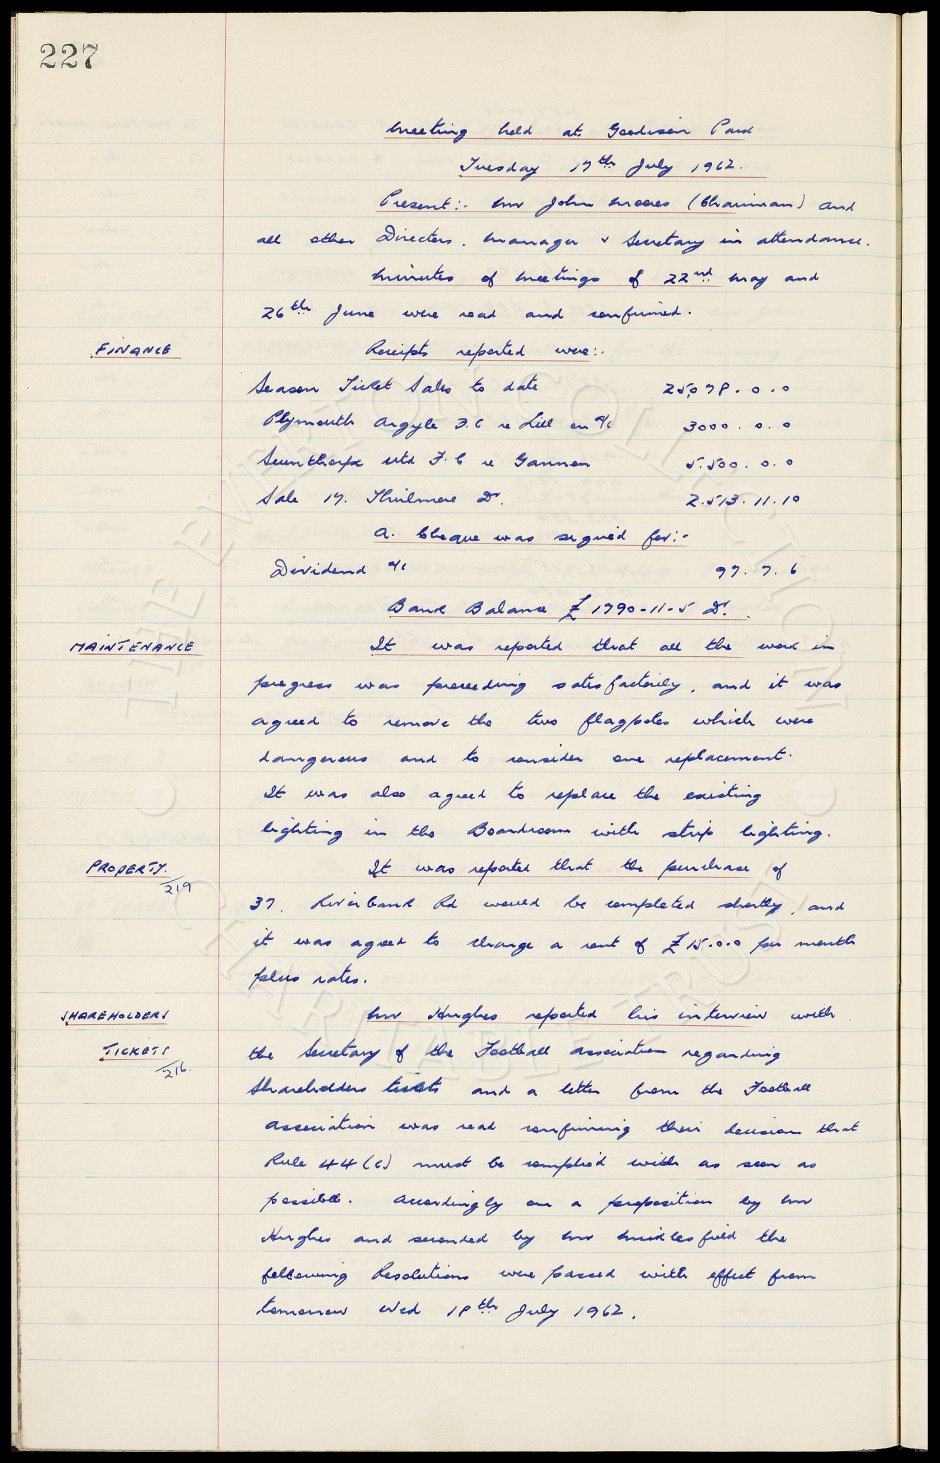 227
Meeting held at Goodison Park
Tuesday 17th July 1962.
Present:- Mr John Moores (Chairman) and
all other Directors. Manager & Secretary in attendance.
Minutes of Meetings of 22nd May and
26th June were read and confirmed.
FINANCE
Receipts reported were:-
Season Ticket Sales to date 25,078.0.0
Plymouth Argyle F.C re Lill on a/c 3000.0.0
Scunthorpe Utd F.C re Gannon 5.500.0.0
Sale 17. Thirlmere Dr. 2.513.11.10
A. Cheque was signed for:-
Dividend a/c 97.7.6
Bank Balance £1790-11-5 Dr.
MAINTENANCE
It was reported that all the work in
progress was proceeding satisfactorily, and it was
agreed to remove the two flagpoles which were
dangerous and to consider one replacement.
It was also agreed to replace the existing
lighting in the Boardroom with strip lighting.
PROPERTY.
/219
It was reported that the purchase of
37. Riverbank Rd would be completed shortly, and
it was agreed to charge a rent of £15.0.0 per month
plus rates.
SHAREHOLDERS
TICKETS
/216.
Mr Hughes reported his interview with
the Secretary of the Football Association regarding
Shareholders tickets and a letter from the Football
Association was read confirming their decision that
Rule 44(c) must be complied with as soon as
possible. Accordingly on a proposition by Mr
Hughes and seconded by Mr Micklesfield the
following Resolutions were passed with effect from
tomorrow Wed 18th July 1962.
THE EVERTON COLLECTION
CHARITABLE TRUST